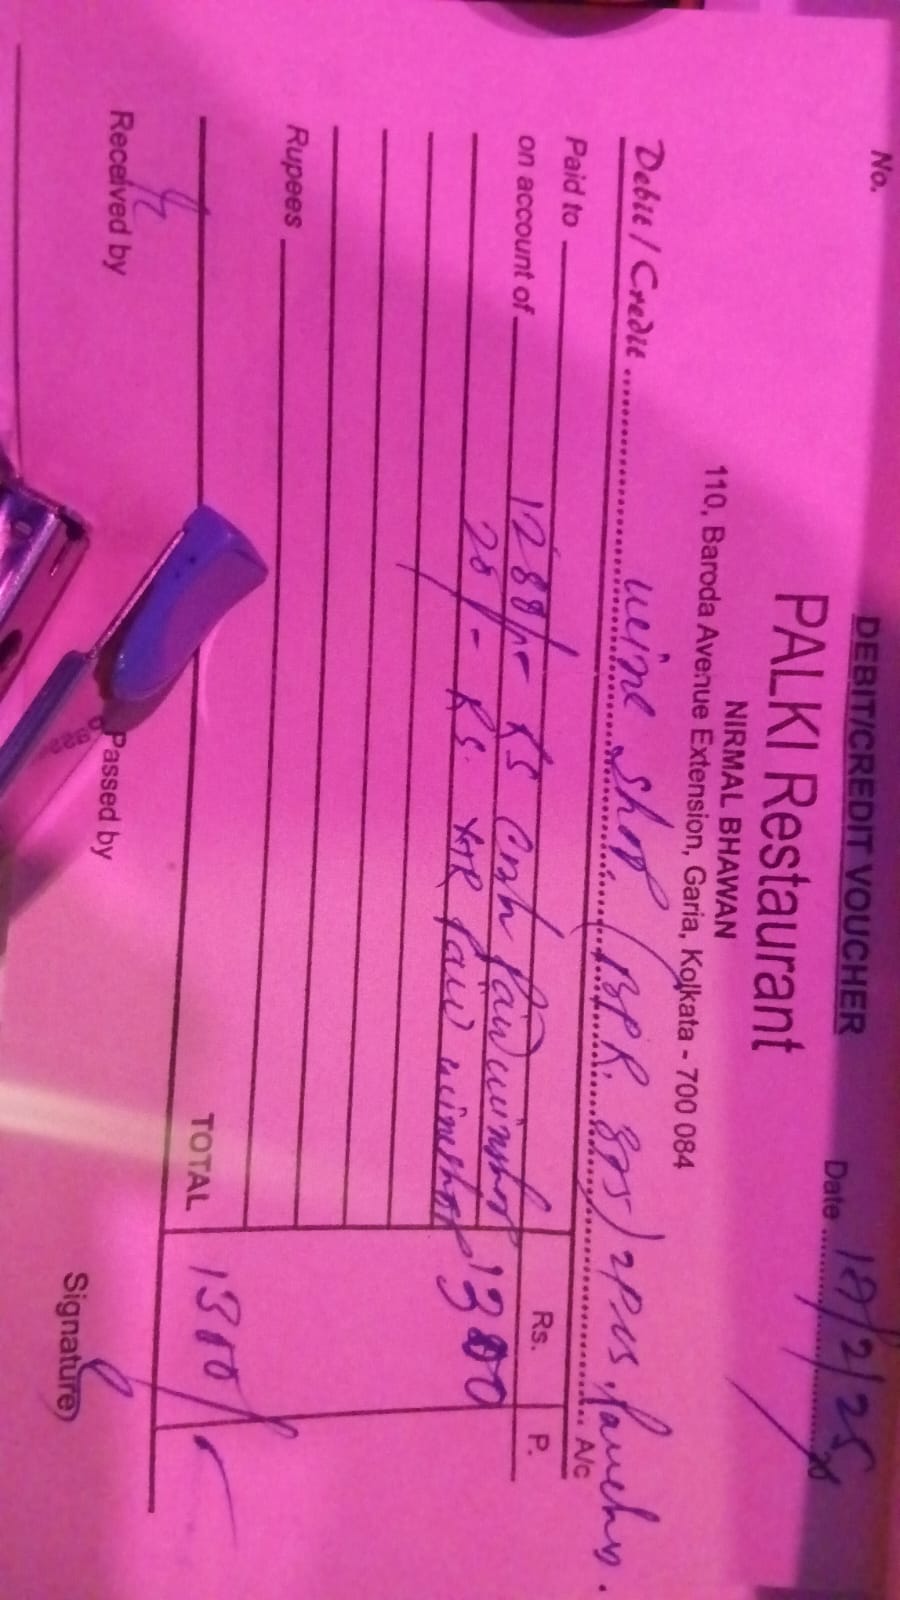 DEBIT/CREDIT VOUCHER
No.
Date 18/2/25
PALKI Restaurant
NIRMAL BHAWAN
110, Baroda Avenue Extension, Garia, Kolkata - 700 084
Debit / Credit wine shop (BPR. 80s) 2pcs, A/c
Paid to
Rs. P.
on account of 1288/- RS Cash Paid wineshop
28/- RS. Paid wineshop 1300
Rupees
TOTAL 1300/-
Received by
Passed by
Signature